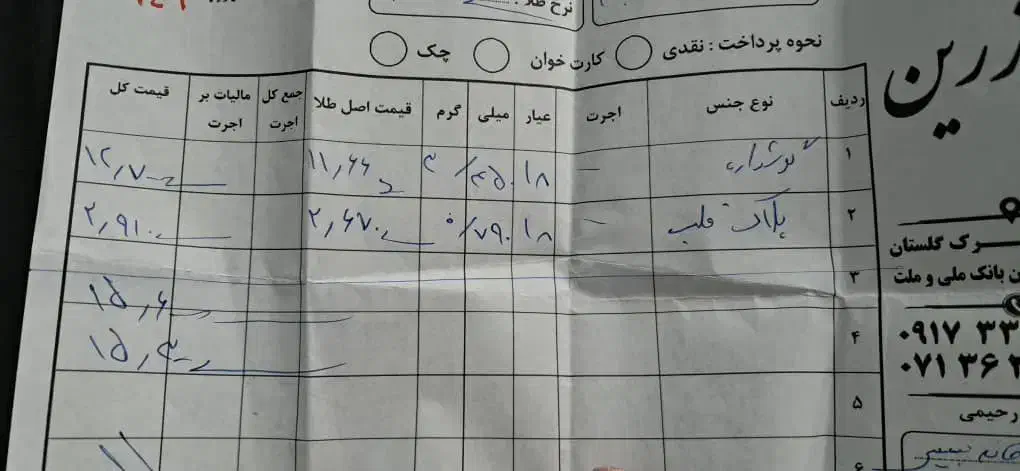 نرخ طلا :
نحوه پرداخت : نقدی کارت خوان چک
زرین
ردیف نوع جنس اجرت عیار میلی گرم قیمت اصل طلا جمع کل اجرت مالیات بر اجرت قیمت کل
۱ گوشواره — ۱۸ ۴۵۰ / ۳ ۱۱,۶۶ ۱۲,۷۰
۲ پلاک قلب — ۱۸ ۷۹۰ / ۰ ۲,۶۷۰ ۲,۹۱۰
۳
۱۵,۶
۴
۱۵,۳۰
۵
۶
رک گلستان
ن بانک ملی و ملت
۰۹۱۷ ۳۳
۰۷۱ ۳۶۲
رحیمی